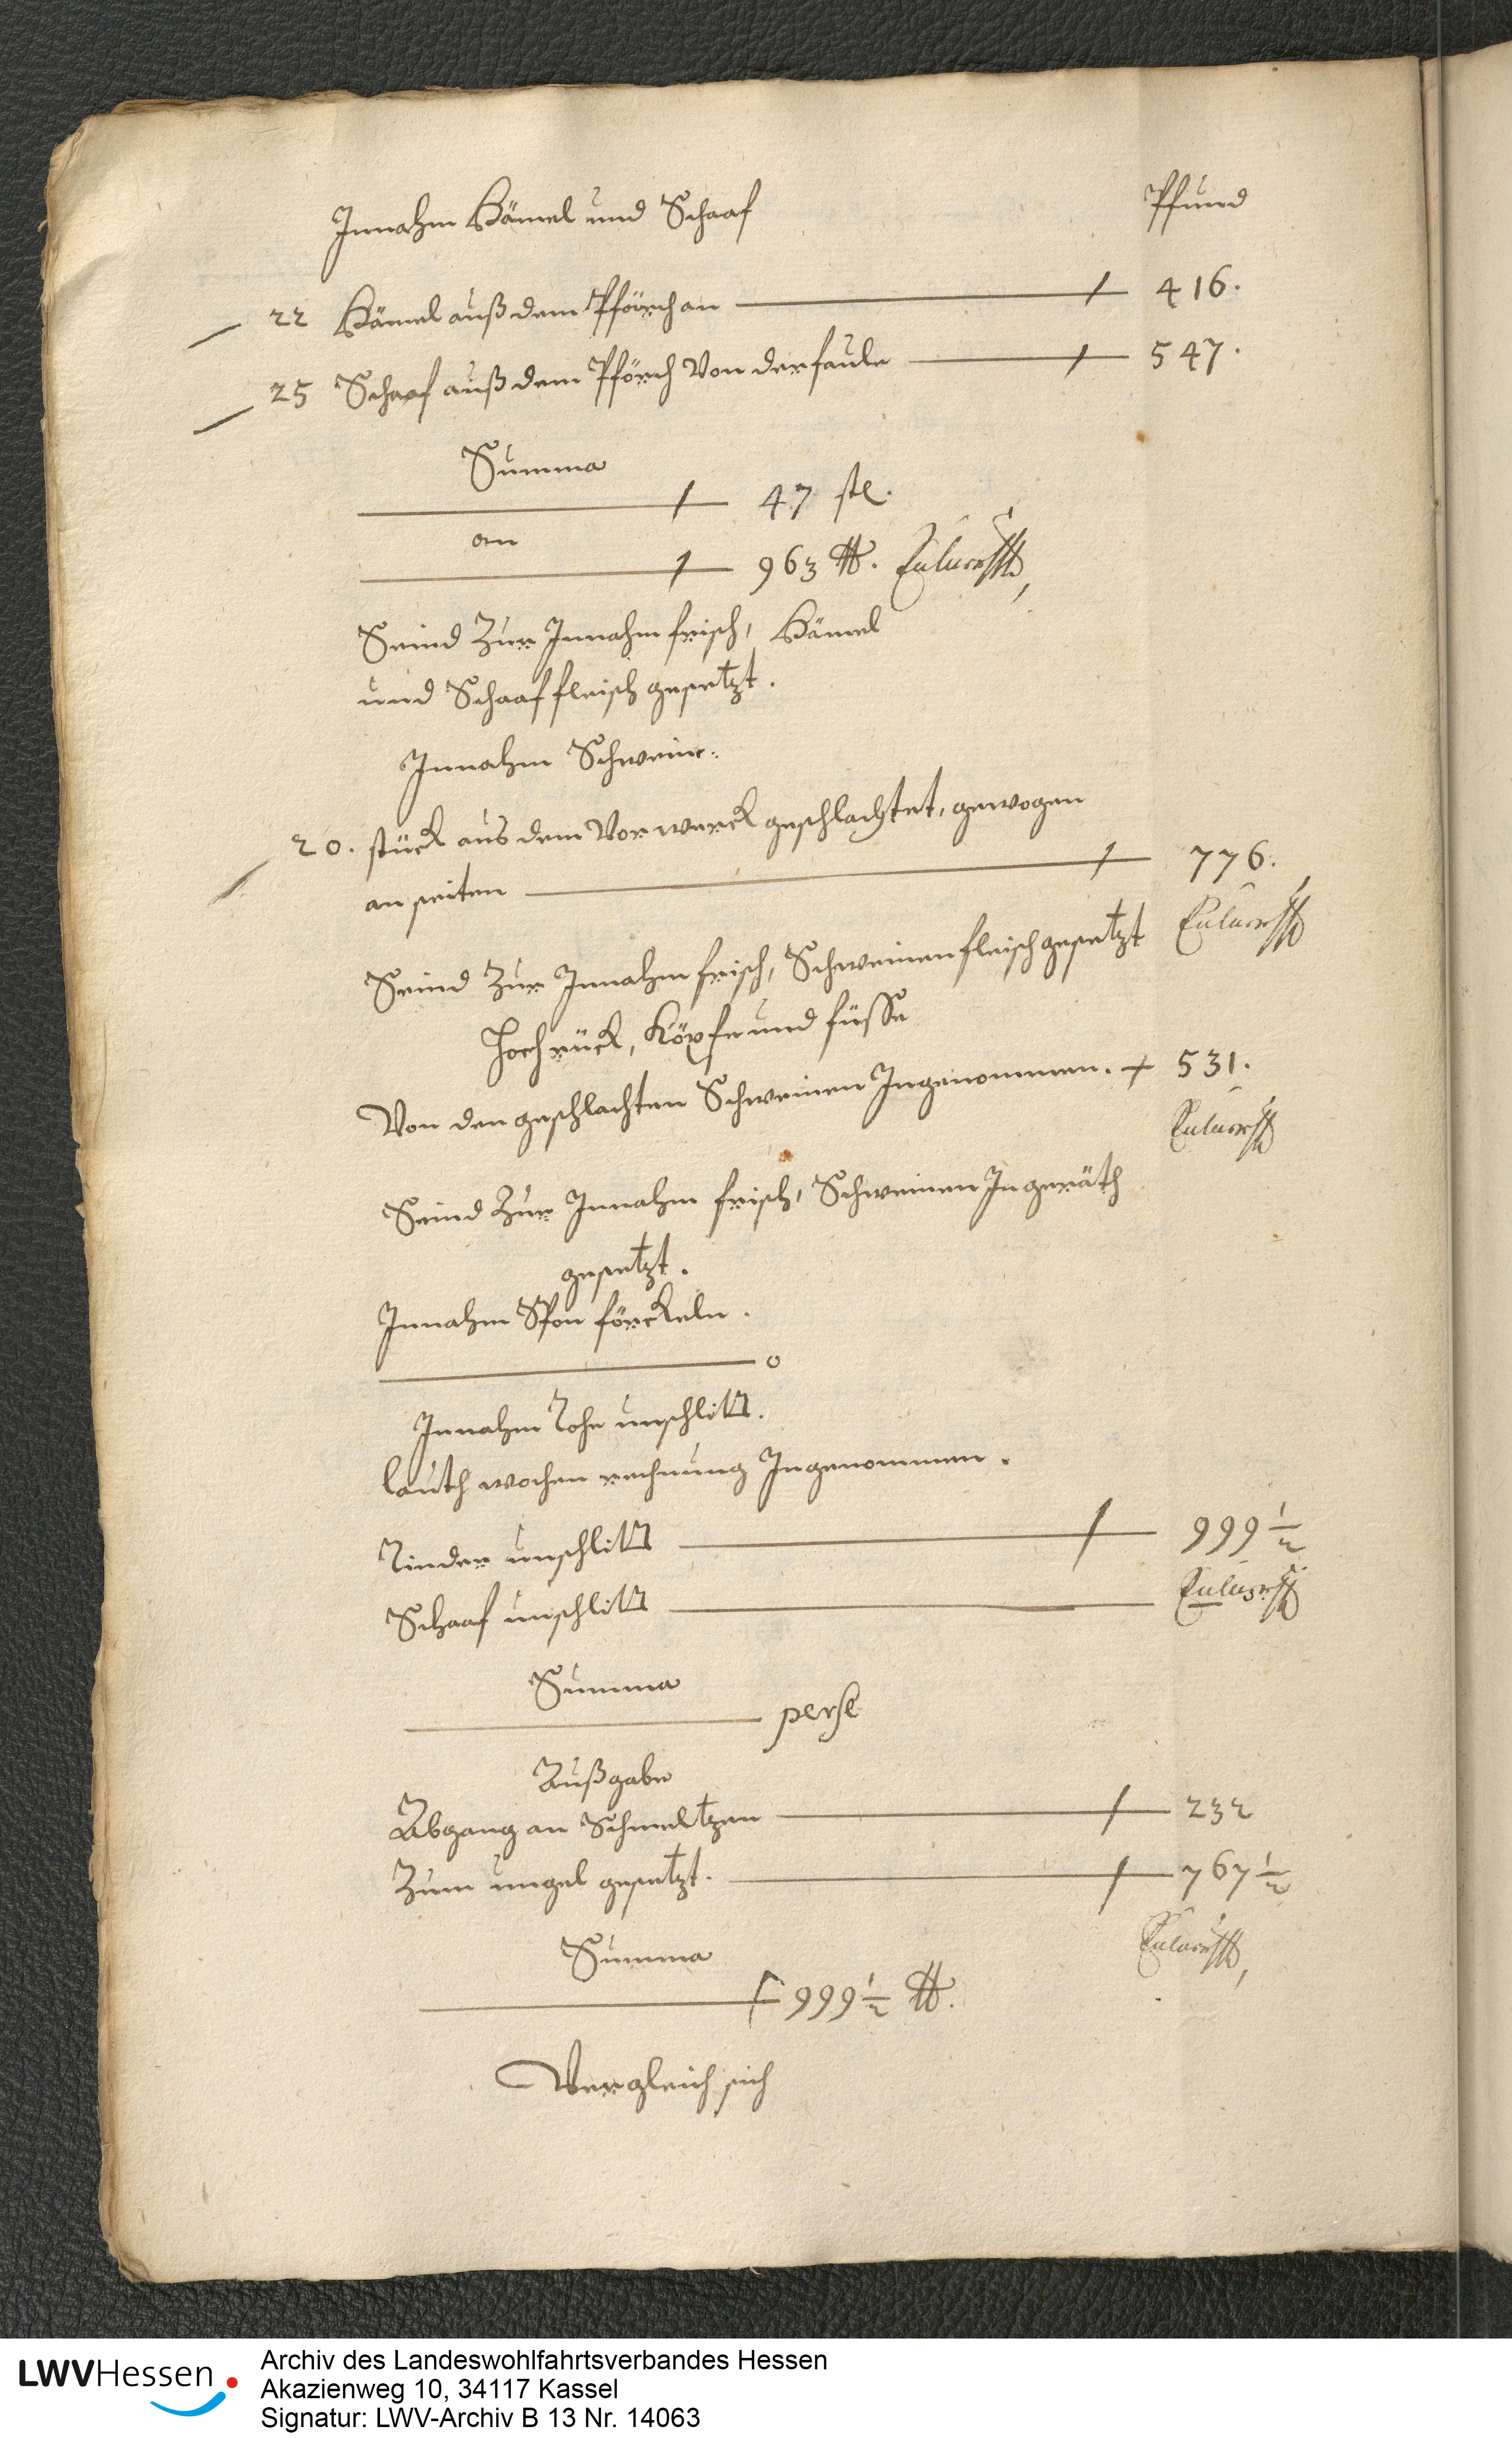 Innahm Hämel und Schaaf Pfund
22 Hämel auß dem Pförch an 416.
25 Schaaf auß dem Pförch Von der faule 547.
Summa
47 stc.
an
963 ℔.
Seind Zur Innahm frisch, Hämel
und Schaaffleisch gesetzt.
Innahm Schweine.
20. stück aus dem Vorwerck geschlachtet, gewogen
an seiten 776.
Seind Zur Innahm frisch, Schweinenfleisch gesetzt
Hochrück, Köpfe und füsse
Von den geschlachten Schweinen Ingenommen. 531.
Seind Zur Innahm frisch, Schweinen Ingeräth
gesetzt.
Innahm Spon förckeln.
0
Innahm Rohe unschlitt.
lauth wochen rechnung Ingenommen.
Rinder unschlitt 999 1/2
Schaaf unschlitt
Summa
perse
Außgabe
Abgang an Schmeltzen 232
Zum ungel gesetzt. 767 1/2
Summa
999 1/2 ℔.
Vergleich sich
LWVHessen
Archiv des Landeswohlfahrtsverbandes Hessen
Akazienweg 10, 34117 Kassel
Signatur: LWV-Archiv B 13 Nr. 14063